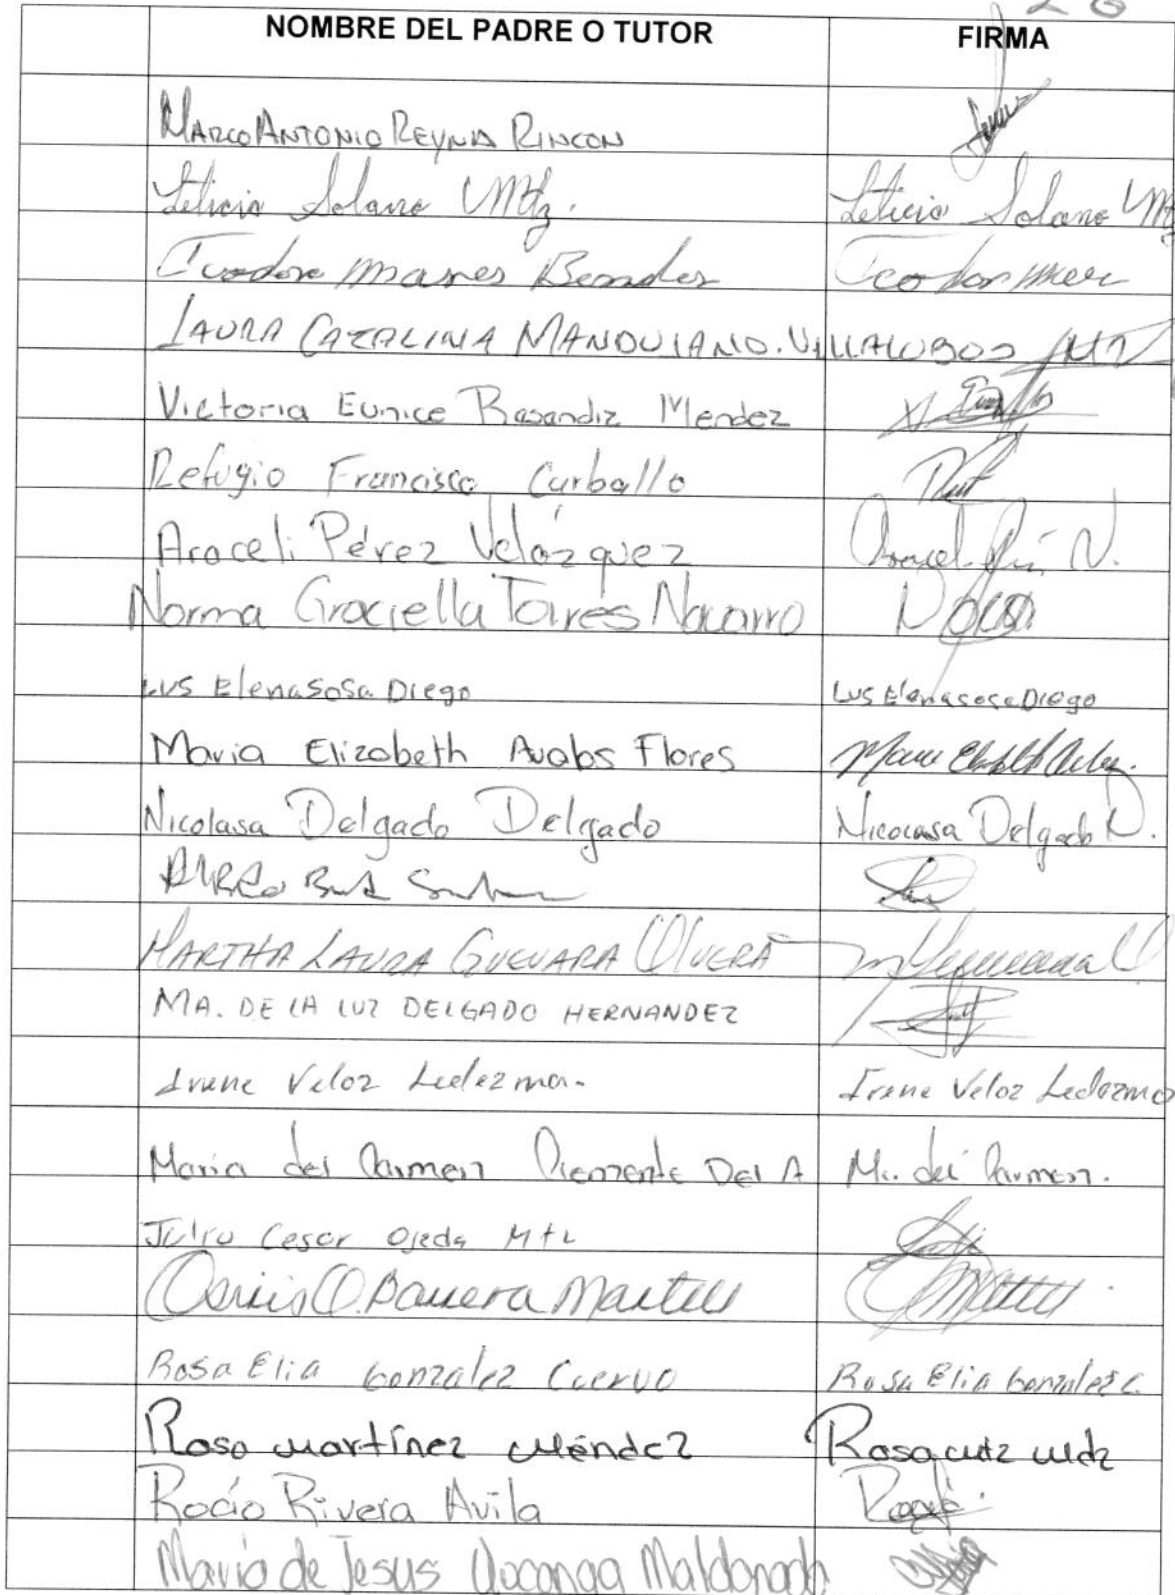 26
NOMBRE DEL PADRE O TUTOR FIRMA
MARCO ANTONIO REYNA RINCON
Leticia Solano Mtz. Leticia Solano Mtz
Teodora Bender Teodor
LAURA CATALINA MANDUJANO. VILLALOBOS
Victoria Eunice Resandiz Mendez
Refugio Francisco Carballo
Araceli Pérez Velázquez Aracel
Norma Graciella Torres Navarro
LUS Elena Sosa Diego LUS Elena sosa Diego
Maria Elizabeth Avalos Flores
Nicolasa Delgado Delgado Nicolasa Delgado D.
MARTHA LAURA GUEVARA OLVERA
MA. DE LA LUZ DELGADO HERNANDEZ
Irene Veloz Ledezma. Irene Veloz Ledezma
Maria del Carmen Clemente Del A Ma. del Carmen.
Julio Cesar Ojeda Mtz
Osiris O. Barrera Martell
Rosa Elia Gonzalez Cuervo Rosa Elia Gonzalez C.
Rosa Martínez Méndez Rosa Mtz Mdz
Rocío Rivera Avila
Maria de Jesus Maldonado